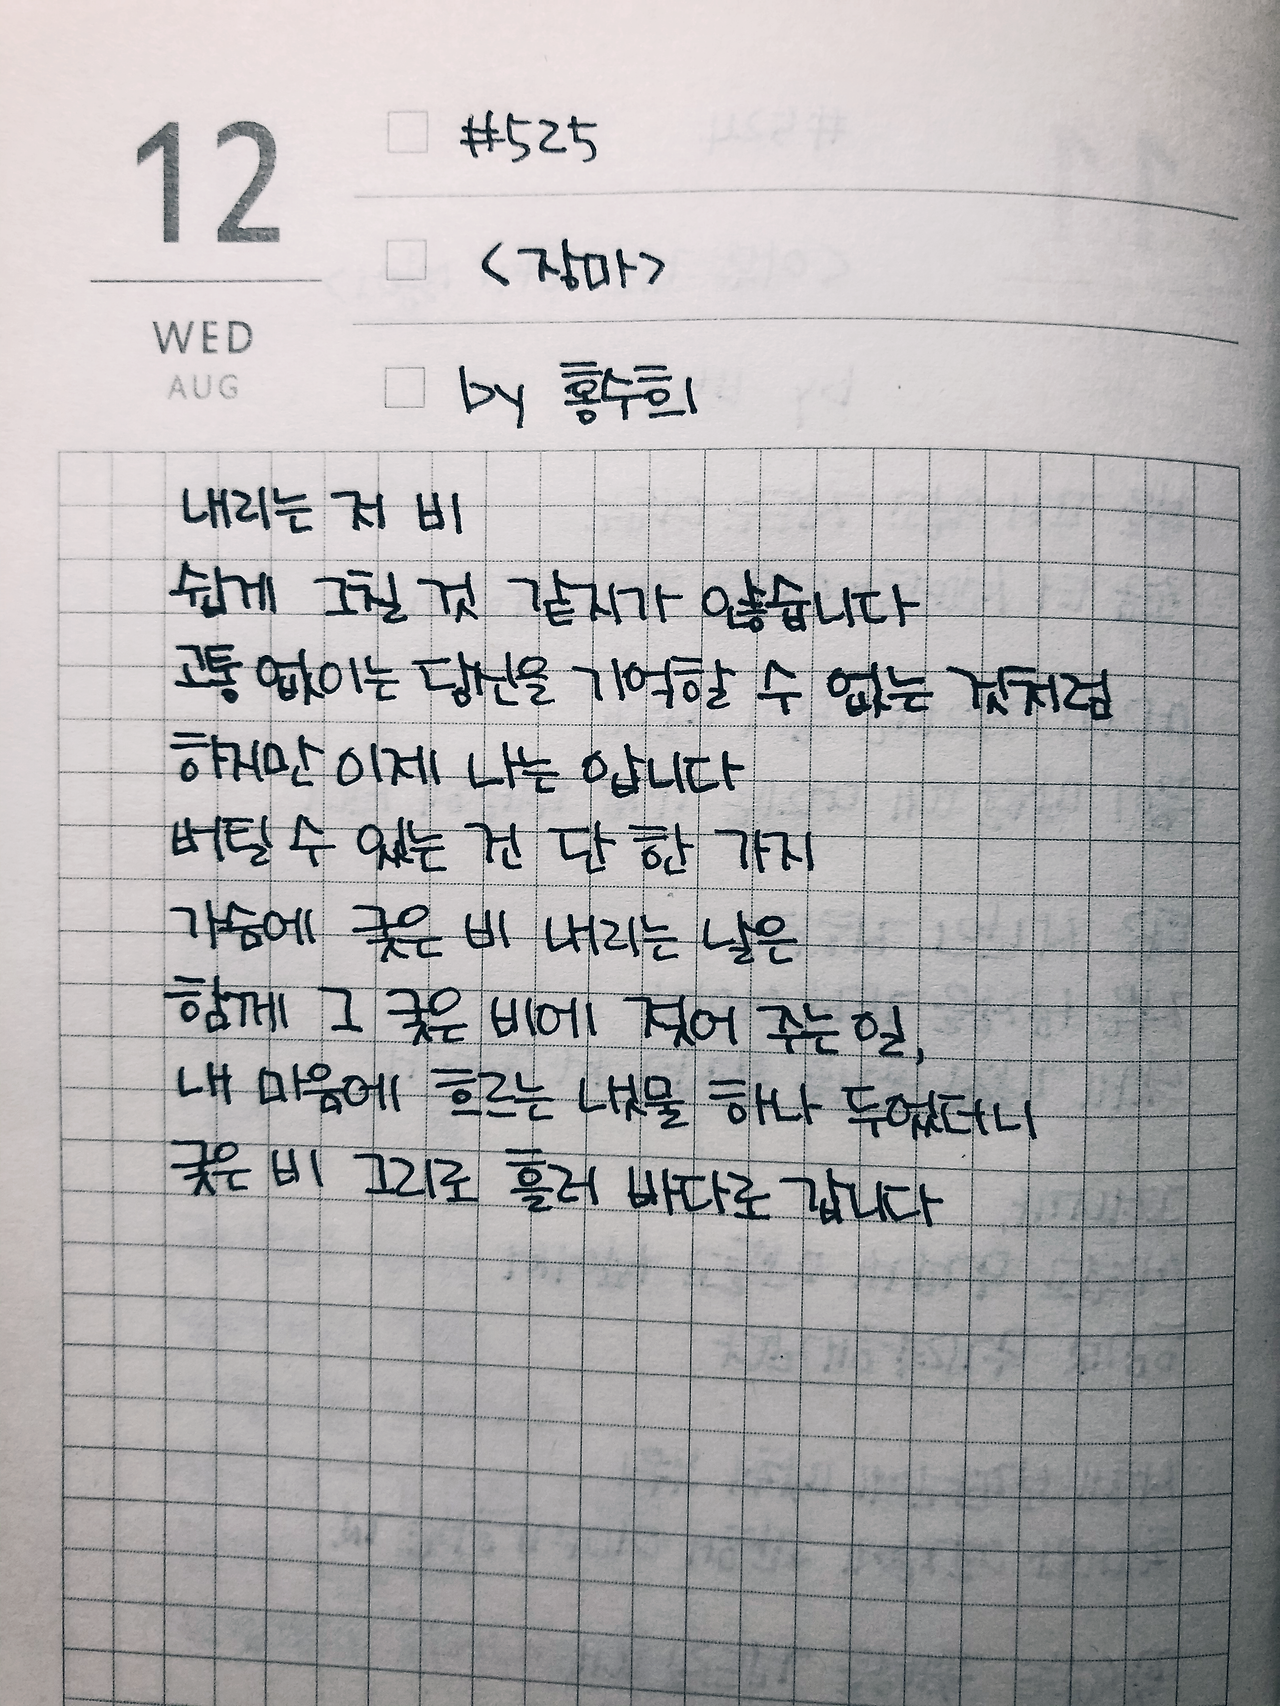 12
WED
AUG
#525
<장마>
by 홍수희
내리는 저 비
쉽게 그칠 것 같지가 않습니다
고통 없이는 당신을 기억할 수 없는 것처럼
하지만 이제 나는 압니다
버틸 수 있는 건 단 한 가지
가슴에 궂은 비 내리는 날은
함께 그 궂은 비에 젖어 주는 일,
내 마음에 흐르는 냇물 하나 두었더니
궂은 비 그리로 흘러 바다로 갑니다